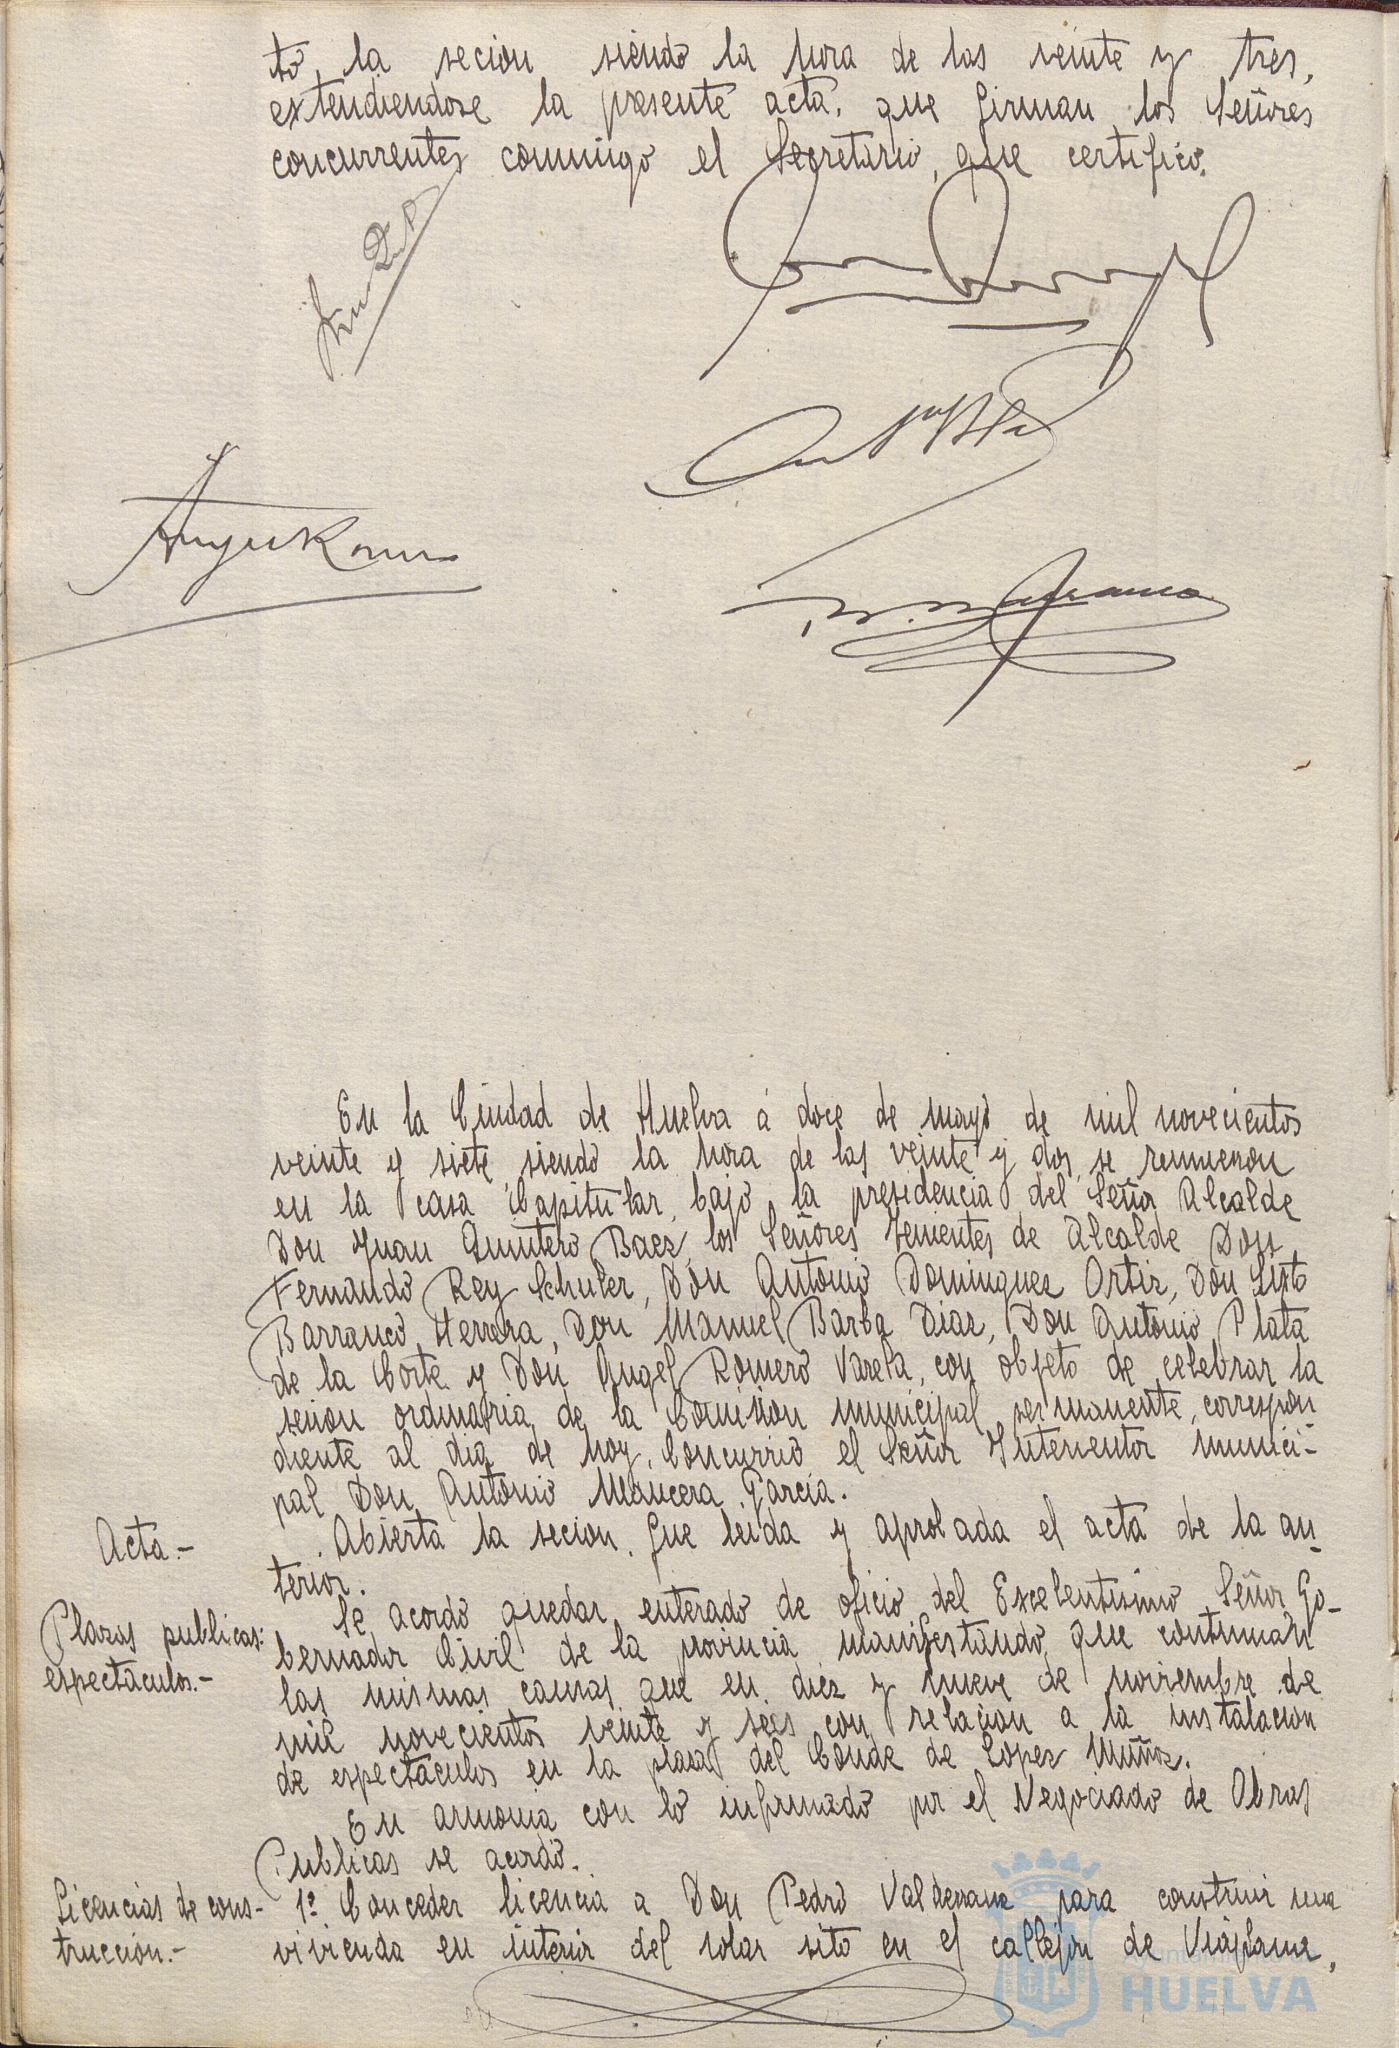 to, la secion siendo la hora de las veinte y tres,
extendiendose la presente acta, que firman los Señores
concurrentes conmigo el Secretario, que certifico.
Angel Romero
En la Ciudad de Huelva á doce de mayo de mil novecientos
veinte y siete, siendo la hora de las veinte y dos, se reunieron
en la casa Capitular, bajo la presidencia del Señor Alcalde
Don Juan Quintero Baez, los Señores Tenientes de Alcalde Don
Fernando Rey Schuler, Don Antonio Dominguez Ortiz, Don Sixto
Barranco Herrera, Don Manuel Barba Diaz, Don Antonio Plata
de la Corte y Don Angel Romero Varela, con objeto de celebrar la
sesion ordinaria de la Comision municipal permanente, correspon
diente al dia de hoy. Concurrió el Señor Interventor munici-
pal Don Antonio Mancera Garcia.
Acta.-
Abierta la secion, fue leida y aprobada el acta de la an-
terior.
Plazas publicas:
espectaculos.-
Se acordó quedar enterado de oficio del Excelentisimo Señor Go-
bernador Civil de la provincia manifestando que continuan
las mismas causas que en diez y nueve de noviembre de
mil novecientos veinte y seis con relacion a la instalacion
de espectaculos en la plaza del Conde de Lopez Muñoz.
En armonia con lo informado por el Negociado de Obras
Publicas se acordó.
Licencias de cons-
trucción.-
1º Conceder licencia a Don Pedro Valderrama para construir una
vivienda en interior del solar sito en el callejon de Viaplana,
Ayuntamiento de
HUELVA